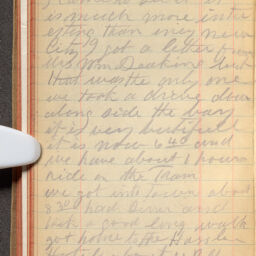 is much more inter
esting than any new
City I got a letter from
Mrs Wm Deakins but
that was the only one
we took a drive down
along side the bay
it is very butifull
it is now 6 40 and
we have about 1 hours
ride on the Tram
we got into Town about
8 30 had Diner and
took a good long walk
got home to the